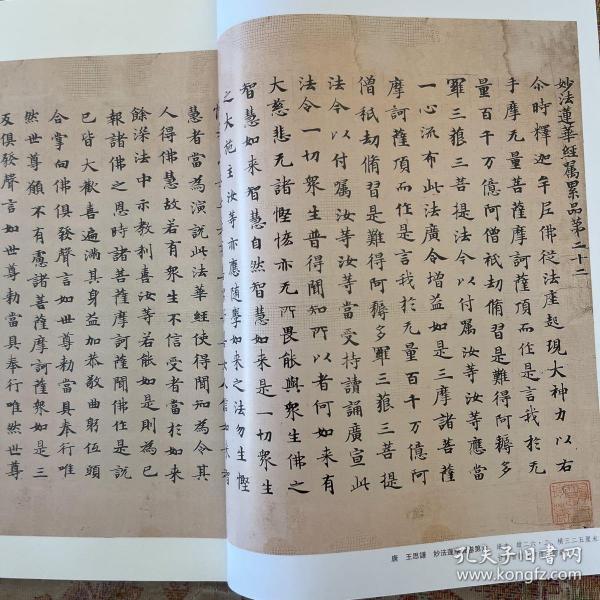 妙法蓮華經屬累品第二十二
尒時釋迦牟尼佛從法座起現大神力以右
手摩无量菩薩摩訶薩頂而作是言我於无
量百千万億阿僧祇劫脩習是難得阿耨多
羅三藐三菩提法今以付屬汝等汝等應當
一心流布此法廣令增益如是三摩諸菩薩
摩訶薩頂而作是言我於无量百千万億阿
僧祇劫脩習是難得阿耨多羅三藐三菩提
法今以付屬汝等汝等當受持讀誦廣宣此
法令一切衆生普得聞知所以者何如來有
大慈悲无諸慳悋亦无所畏能與衆生佛之
智慧如來智慧自然智慧如來是一切衆生
之大施主汝等亦應隨學如來之法勿生慳
信如來智
慧者當為演說此法華經使得聞知為令其
人得佛慧故若有衆生不信受者當於如來
餘深法中示教利喜汝等若能如是則為已
報諸佛之恩時諸菩薩摩訶薩聞佛作是說
已皆大歡喜遍滿其身益加恭敬曲躬低頭
合掌向佛俱發聲言如世尊勅當具奉行唯
然世尊願不有慮諸菩薩摩訶薩衆如是三
反俱發聲言如世尊勅當具奉行唯然世尊
唐 王思謙 妙法蓮 橫三二五厘米
孔夫子旧书网